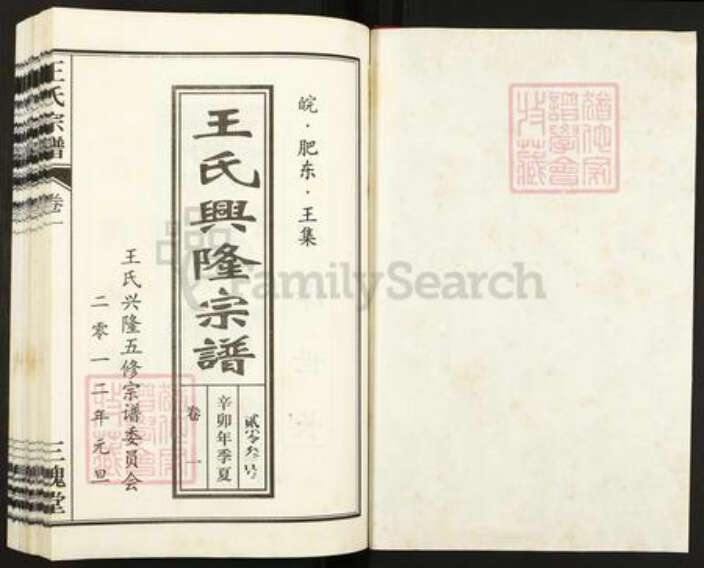 皖·肥东·王集
王氏興隆宗譜
卷一
辛卯年季夏
王氏兴隆五修宗谱委员会
二零一二年元旦
王氏宗譜
卷一
三槐堂
FamilySearch